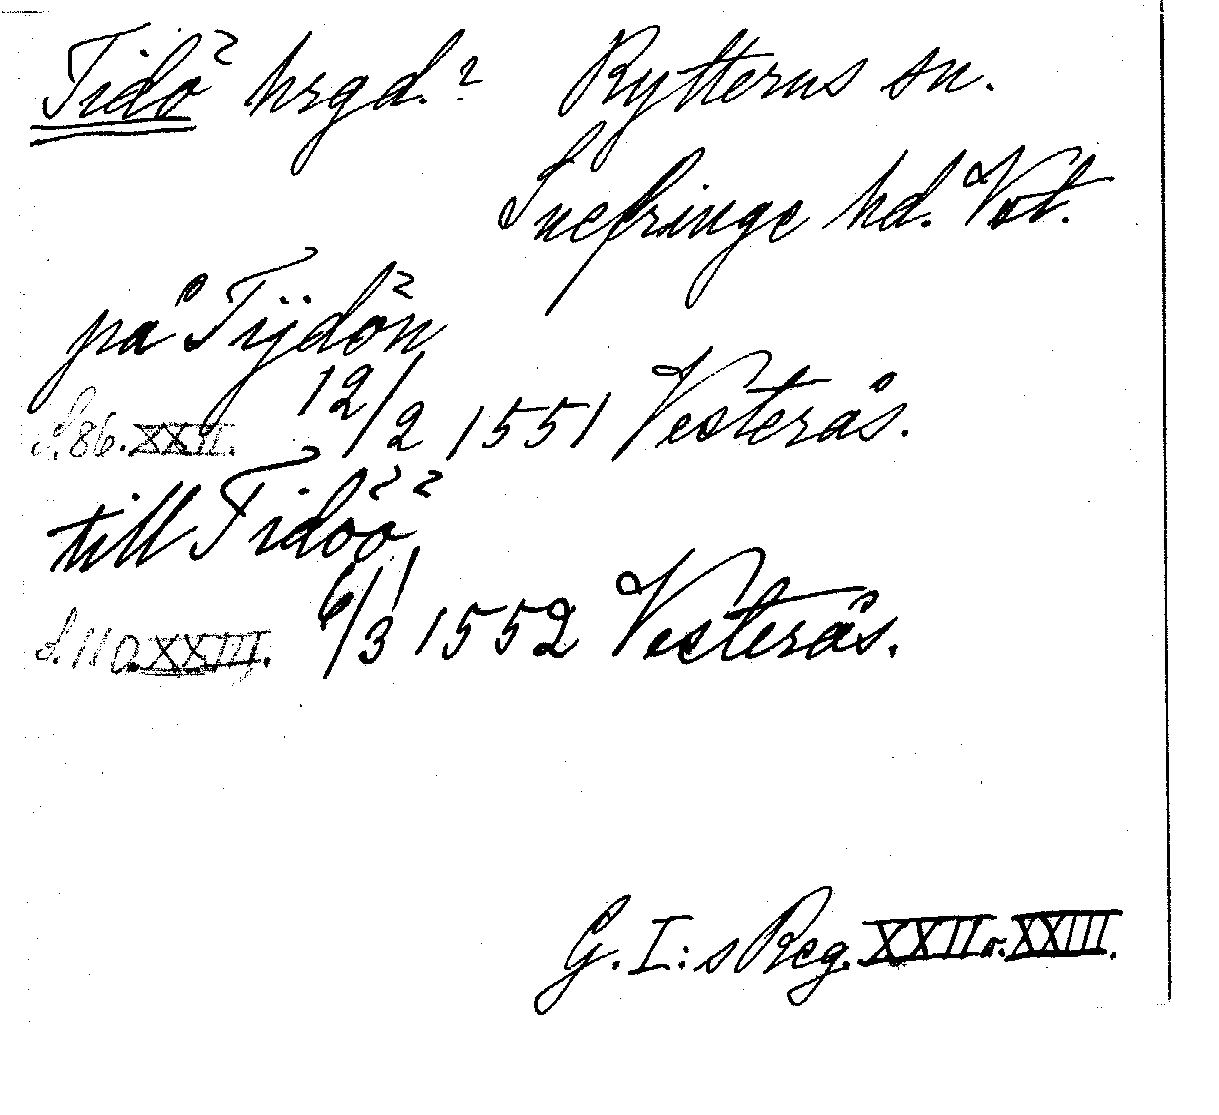 Tidö hrgd.? Rytterns sn.
Snefringe hd. Vstl.
på Tijdön
S. 86. XXII. 12/2 1551 Vesterås.
till Tidöö
S. 110. XXIII. 6/3 1552 Vesterås.
G. I:s Reg. XXII o. XXIII.